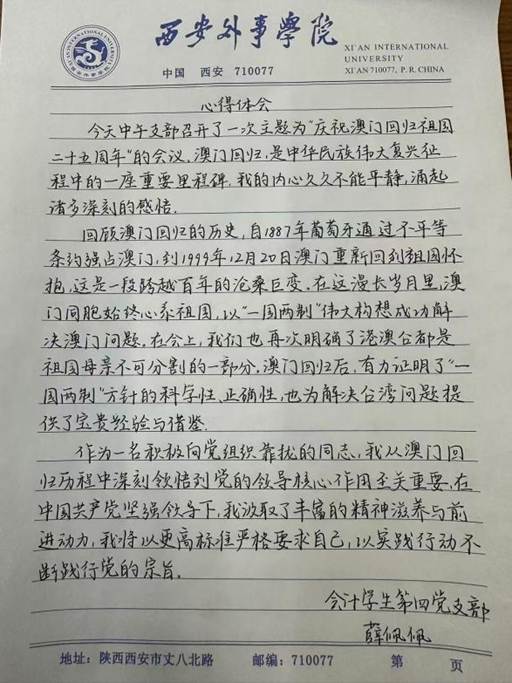 西安外事學院
XI'AN INTERNATIONAL
UNIVERSITY
中国 西安 710077
XI'AN 710077, P. R. CHINA
心得体会
今天中午支部召开了一次主题为“庆祝澳门回归祖国
二十五周年”的会议，澳门回归，是中华民族伟大复兴征
程中的一座重要里程碑，我的内心久久不能平静，涌起
诸多深刻的感悟.
回顾澳门回归的历史，自1887年葡萄牙通过不平等
条约强占澳门，到1999年12月20日澳门重新回到祖国怀
抱，这是一段跨越百年的沧桑巨变.在这漫长岁月里，澳
门同胞始终心系祖国，以“一国两制”伟大构想成功解
决澳门问题，在会上，我们也再次明确了港澳台都是
祖国母亲不可分割的一部分.澳门回归后，有力证明了“一
国两制”方针的科学性、正确性，也为解决台湾问题提
供了宝贵经验与借鉴.
作为一名积极向党组织靠拢的同志，我从澳门回
归历程中深刻领悟到党的领导核心作用至关重要，在
中国共产党坚强领导下，我汲取了丰富的精神滋养与前
进动力，我将以更高标准严格要求自己，以实践行动不
断践行党的宗旨.
会计学生第四党支部
薛佩佩
地址：陕西西安市丈八北路 邮编：710077 第 页